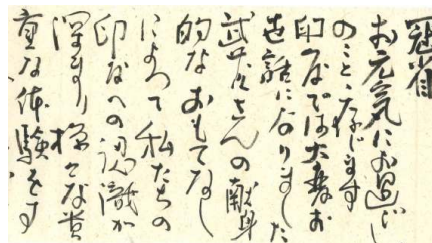 冠省
お元気にお過ごし
のことと存じます
印度では大変お
世話になりました
武井さんの献身
的なおもてなし
によって私たちの
印度への認識が
深まり、様々な貴
重な体験をす